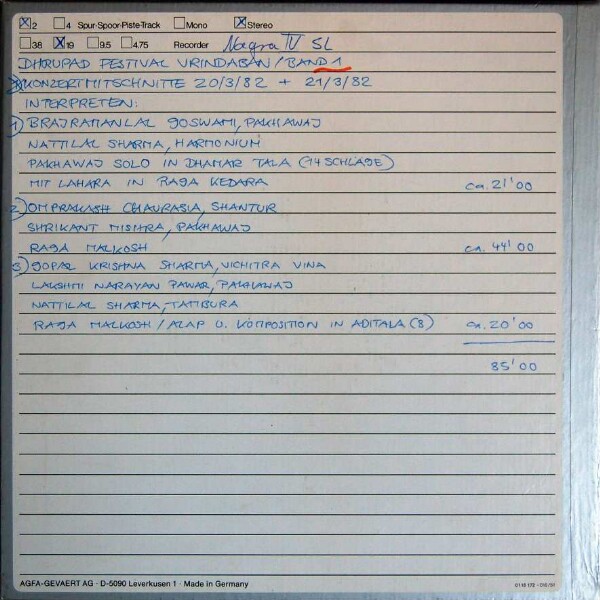 ☒2 ☐4 Spur·Spoor·Piste·Track ☐Mono ☒Stereo
☐38 ☒19 ☐9.5 ☐4.75 Recorder Nagra IV SL
DHRUPAD FESTIVAL VRINDABAN / BAND 1
KONZERTMITSCHNITTE 20/3/82 + 21/3/82
INTERPRETEN:
1) BRAJRAMANLAL GOSWAMI, PAKHAWAJ
NATTILAL SHARMA, HARMONIUM
PAKHAWAJ SOLO IN DHAMAR TALA (14 SCHLÄGE)
MIT LAHARA IN RAGA KEDARA ca. 21'00
2) OMPRAKASH CHAURASIA, SHANTUR
SHRIKANT MISHRA, PAKHAWAJ
RAGA MALKOSH ca. 44'00
3) GOPAL KRISHNA SHARMA, VICHITRA VINA
LAKSHMI NARAYAN PAWAR, PAKHAWAJ
NATTILAL SHARMA, TAMBURA
RAGA MALKOSH / ALAP U. KOMPOSITION IN ADITALA (8) ca. 20'00
85'00
AGFA-GEVAERT AG · D-5090 Leverkusen 1 · Made in Germany